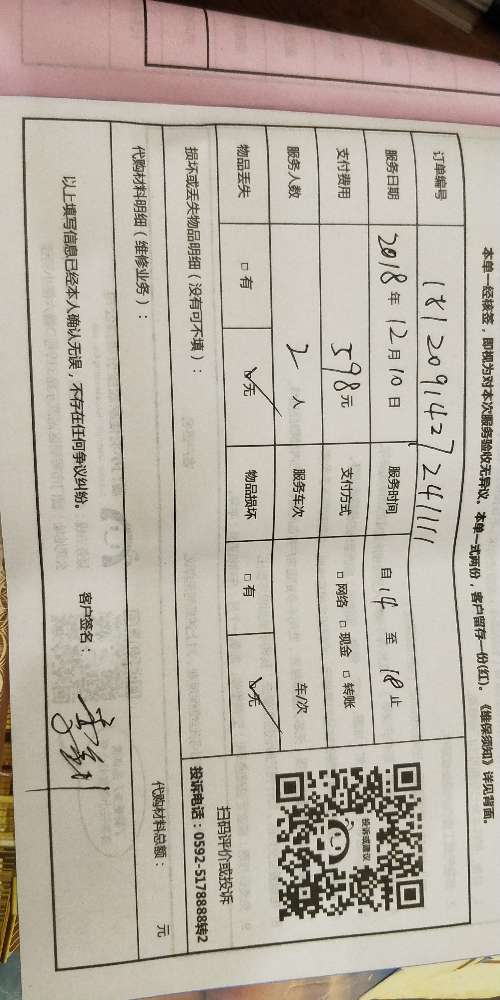 本单一经核签，即视为对本次服务验收无异议。本单一式两份，客户留存一份(红)。《维保须知》详见背面。
订单编号 1812091427241111
服务日期 2018年12月10日 服务时间 自14至18止
支付费用 598元 支付方式 □网络 □现金 □转账
服务人数 2人 服务车次 车/次
物品丢失 □有 ☑无 物品损坏 □有 ☑无
投诉或建议
扫码评价或投诉
投诉电话：0592-5178888转2
损坏或丢失物品明细（没有可不填）：
代购材料明细（维修业务）： 代购材料总额： 元
以上填写信息已经本人确认无误，不存在任何争议纠纷。 客户签名：